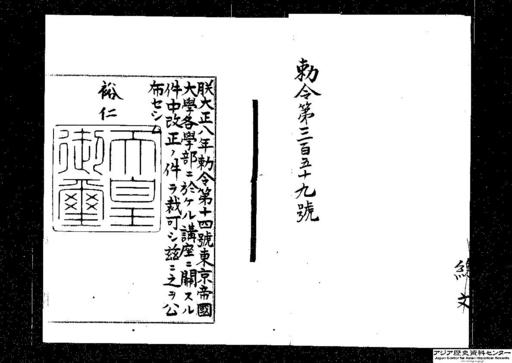 勅令第三百五十九號
朕大正八年勅令第十四號東京帝國
大學各學部ニ於ケル講座ニ關スル
件中改正ノ件ヲ裁可シ茲ニ之ヲ公
布セシム
裕仁
天皇
御璽
アジア歴史資料センター
Japan Center for Asian Historical Records